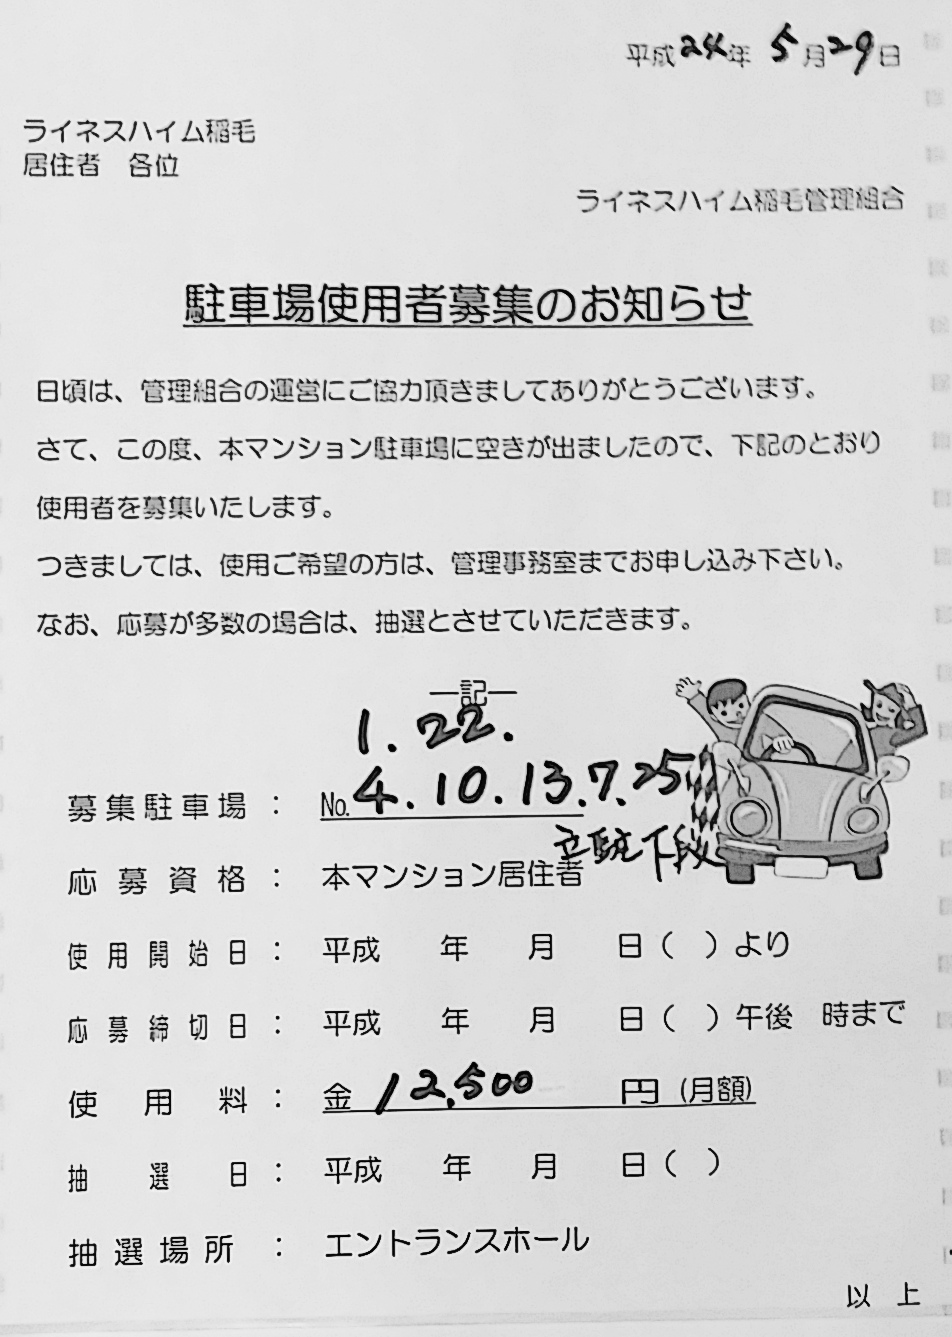 平成24年 5月29日
ライネスハイム稲毛
居住者 各位
ライネスハイム稲毛管理組合
駐車場使用者募集のお知らせ
日頃は、管理組合の運営にご協力頂きましてありがとうございます。
さて、この度、本マンション駐車場に空きが出ましたので、下記のとおり
使用者を募集いたします。
つきましては、使用ご希望の方は、管理事務室までお申し込み下さい。
なお、応募が多数の場合は、抽選とさせていただきます。
―記―
1. 22.
募集駐車場 : No. 4. 10. 13. 7. 25
立駐下段
応募資格 : 本マンション居住者
使用開始日 : 平成 年 月 日( )より
応募締切日 : 平成 年 月 日( )午後 時まで
使用料 : 金 12,500 円(月額)
抽選日 : 平成 年 月 日( )
抽選場所 : エントランスホール
以 上